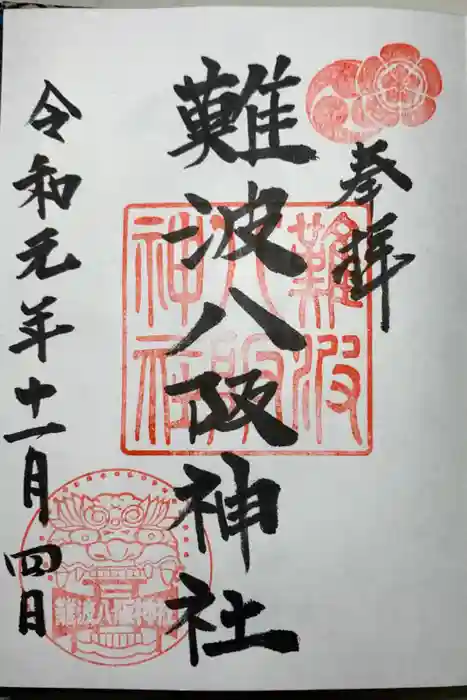 奉拝
難波八阪神社
難波
八阪
神社
令和元年十一月四日
難波八阪神社